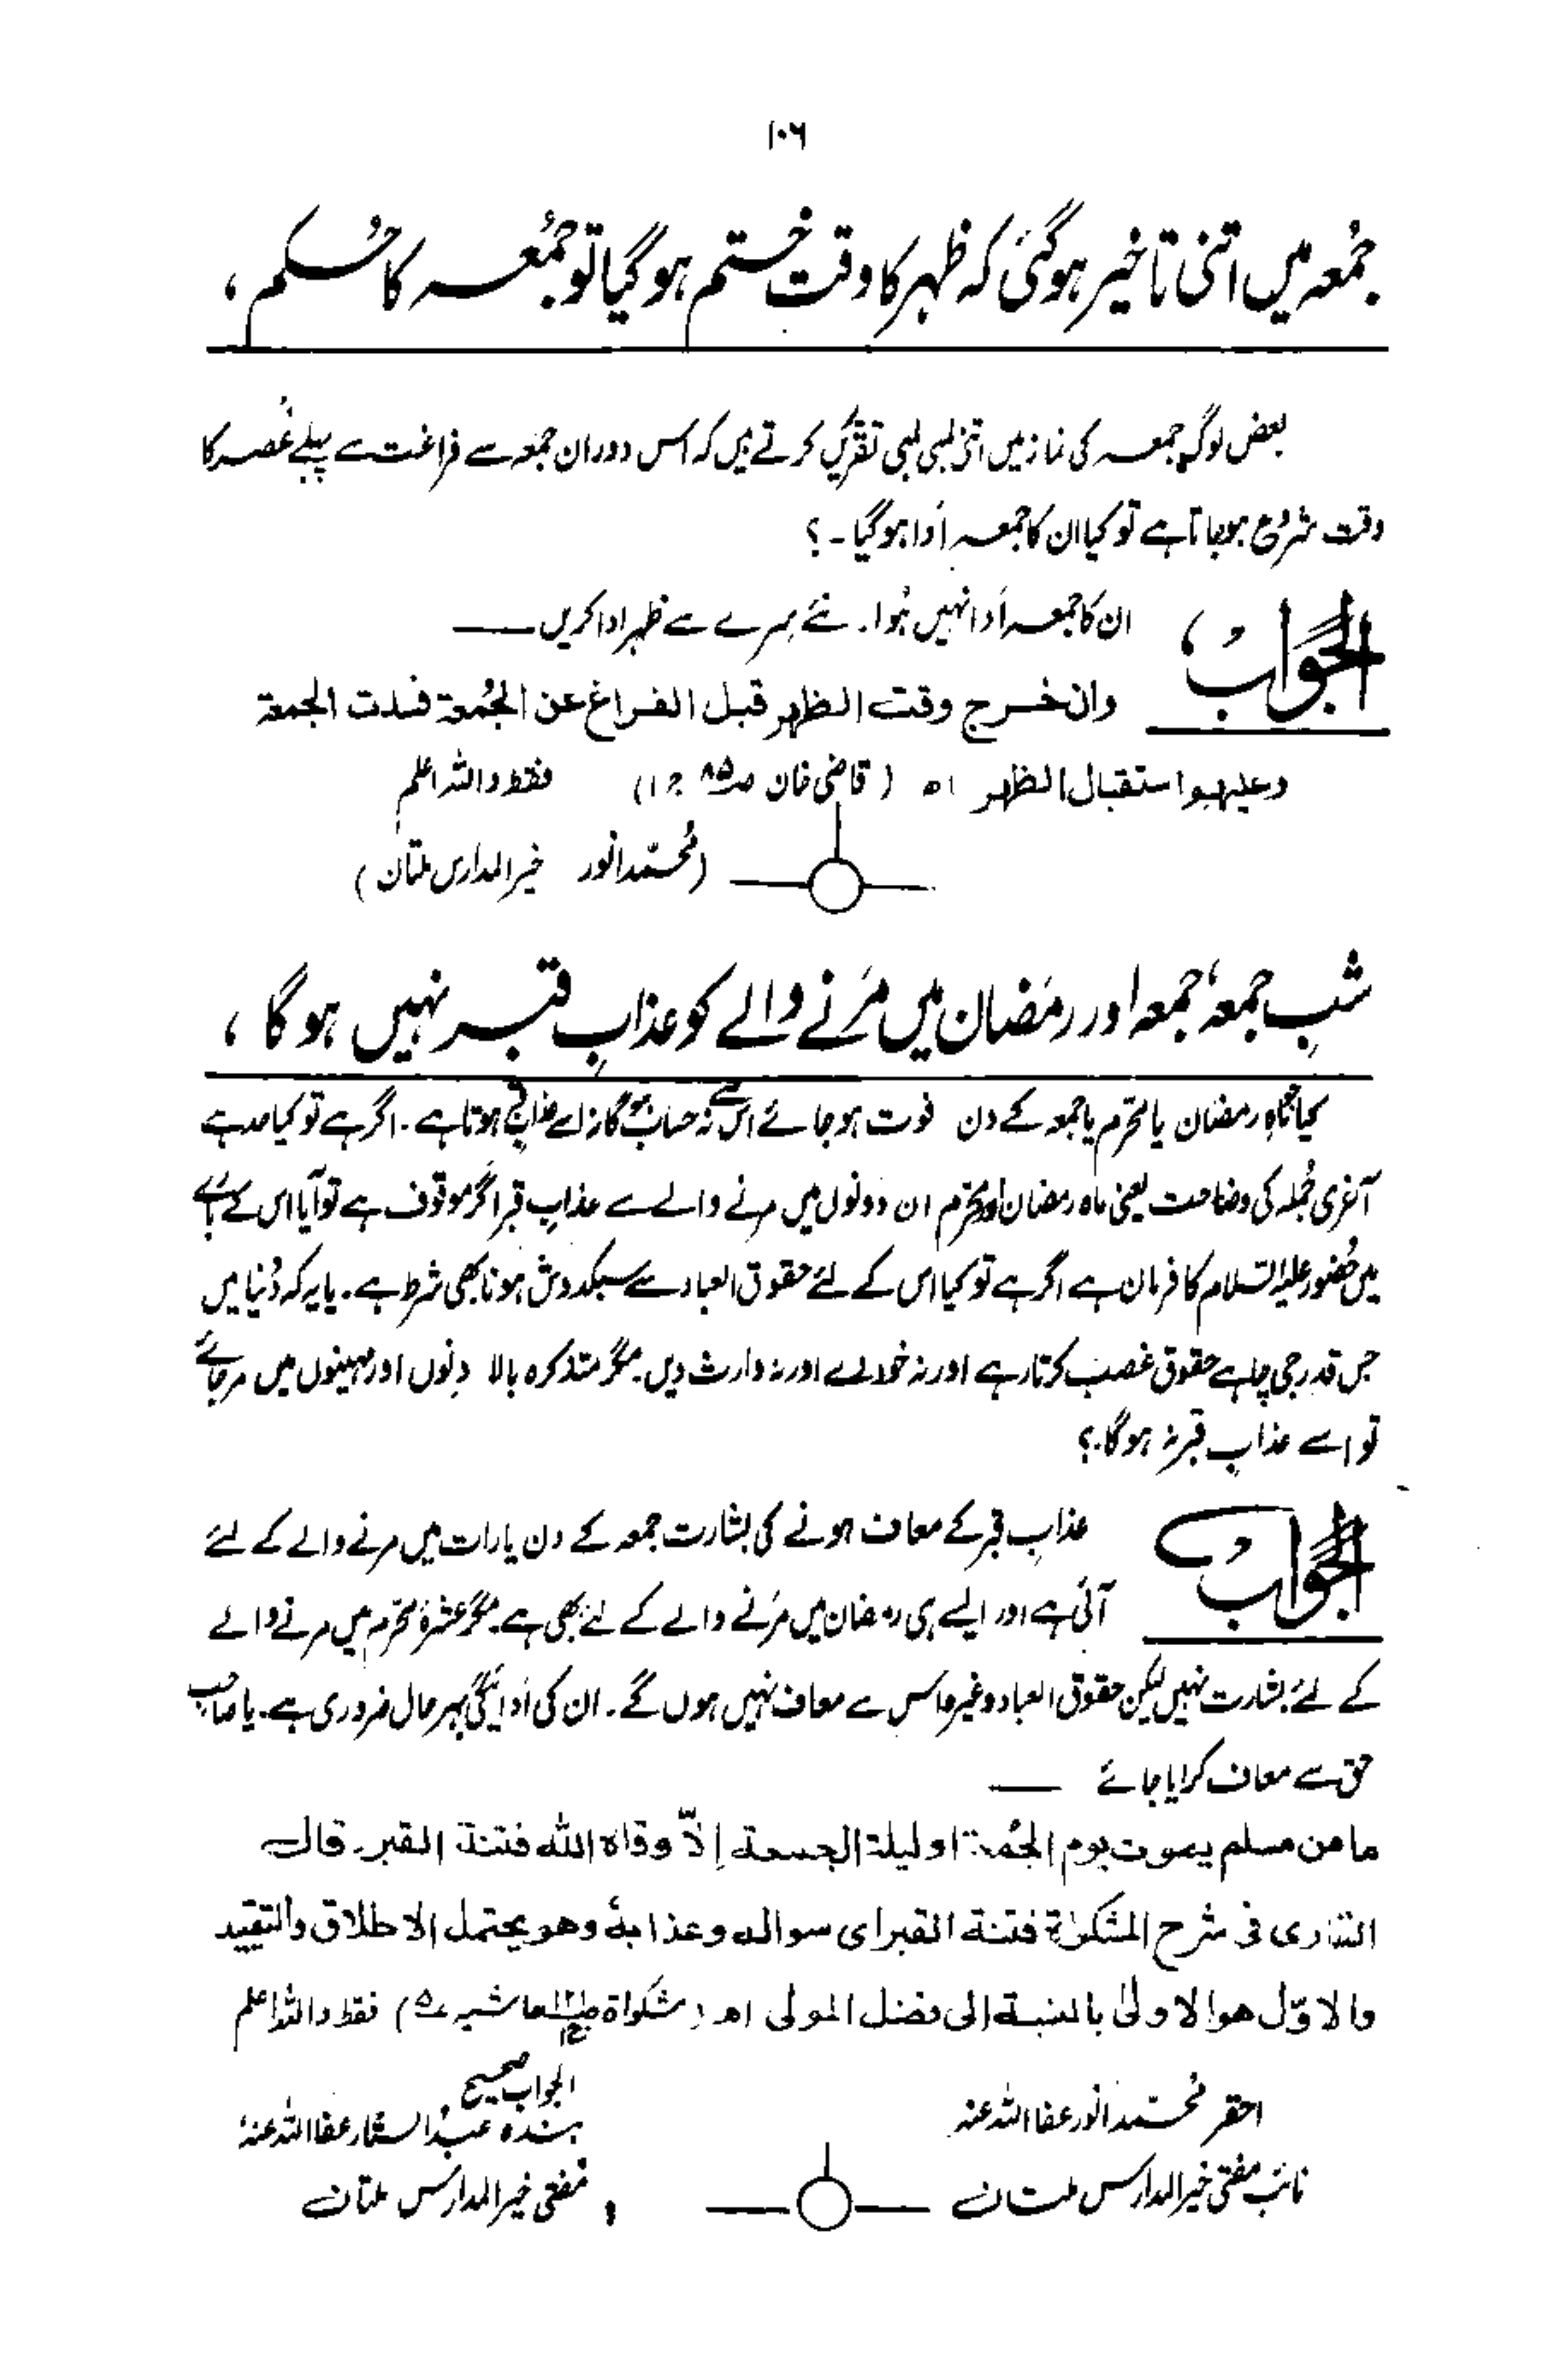 ۱۰۶
جُمعہ میں اتنی تاخیر ہوگئی کہ ظہر کا وقت ختم ہوگیا تو جمُعہ کا حُکم ،
بعض لوگ جمعہ کی نماز میں اتنی لمبی لمبی تقریریں کرتے ہیں کہ اس دوران جمعہ سے فراغت سے پہلے عصر کا
وقت شروع ہوجاتا ہے تو کیا ان کا جمعہ اَدا ہوگیا ۔ ؟
الجَوابُ ، ان کا جمعہ اَدا نہیں ہُوا ۔ نئے سِرے سے ظہر ادا کریں ـــــ
وان خرج وقت الظهر قبل الفراغ عن الجُمعة فسدت الجمعة
وعليهم استقبال الظهر اه ( قاضی خان ص۸۵ ج ۱ ) فقط واللہ اعلم
( مُحمّد انور خیر المدارس ملتان )
شبِ جمعہ ، جمعہ اور رمَضان میں مَرنے والے کو عذابِ قبر نہیں ہوگا ،
کیا ماہِ رمضان یا محرم یا جمعہ کے دن فوت ہوجائے اس سے نہ حساب ہوگا نہ اسے عذاب ہوتا ہے ۔ اگر ہے تو کیا حد ہے
آخری جُملہ کی وضاحت یعنی ماہ رمضان اور محرم ان دونوں میں مرنے والے سے عذابِ قبر اگر موقوف ہے تو آیا اس کے بارے
میں حُضور علیہ السّلام کا فرمان ہے اگر ہے تو کیا اس کے لئے حقوق العباد سے سبکدوش ہونا بھی شرط ہے ۔ یا یہ کہ دُنیا میں
جس قدر جی چاہے حقوق غصب کرتا رہے اور نہ خود دے اور نہ وارث دیں ۔ مگر متذکرہ بالا دِنوں اور مہینوں میں مرجائے
تو اسے عذابِ قبر نہ ہوگا ؟
الجَوابُ عذابِ قبر کے معاف ہونے کی بشارت جمعہ کے دن یا رات میں مرنے والے کے لئے
آئی ہے اور ایسے ہی رمضان میں مَرنے والے کے لئے بھی ہے ۔ مگر عشرۂ محرم میں مرنے والے
کے لئے بشارت نہیں لیکن حقوق العباد وغیرہا اس سے معاف نہیں ہوں گے ۔ ان کی اَدائیگی بہرحال ضروری ہے ۔ یا صاحب
حق سے معاف کرایا جائے ـــــ
ما من مسلم يموت يوم الجُمعة او ليلة الجمعة إلّا وقاه الله فتنة القبر ۔ قال
القاری فی شرح المشکوٰة فتنة القبر ای سواله وعذابهٔ وهو یحتمل الاطلاق والتقیید
والاوّل هو الاولیٰ بالنسبة الی فضل المولی اه ( مشکوٰة حاشیہ ۵ ) فقط واللہ اعلم
احقر مُحمّد انور عفا اللہ عنہ
نائب مفتی خیر المدارس ملتان
الجواب صحیح
بندہ عبدُ الستار عفا اللہ عنہٗ
مُفتی خیر المدارس ملتان